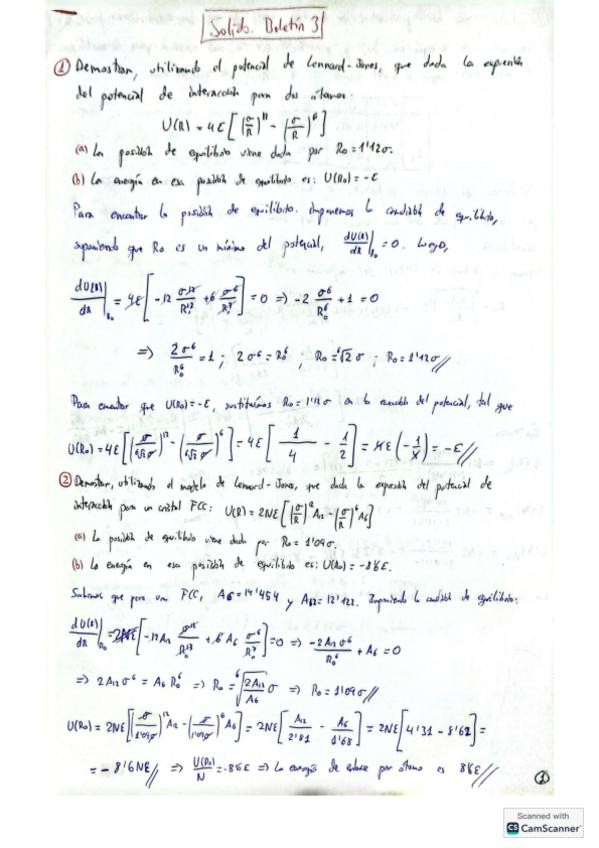 Solido. Boletín 3
① Demostrar, utilizando el potencial de Lennard-Jones, que dada la expresión
del potencial de interacción para dos átomos:
U(R) = 4ε[(σ/R)^12 - (σ/R)^6]
(a) La posición de equilibrio viene dada por R₀ = 1'12σ.
(b) La energía en esa posición de equilibrio es: U(R₀) = -ε
Para encontrar la posición de equilibrio. Imponemos la condición de equilibrio,
suponiendo que R₀ es un mínimo del potencial, dU(R)/dR|R₀ = 0. Luego,
dU(R)/dR|R₀ = 4ε[-12 σ^12/R₀^13 + 6 σ^6/R₀^7] = 0 => -2 σ^6/R₀^6 + 1 = 0
=> 2σ^6/R₀^6 = 1 ; 2σ^6 = R₀^6 ; R₀ = ⁶√2 σ ; R₀ = 1'12σ //
Para encontrar que U(R₀) = -ε, sustituimos R₀ = 1'12σ en la ecuación del potencial, tal que
U(R₀) = 4ε[(σ/⁶√2 σ)^12 - (σ/⁶√2 σ)^6] = 4ε[1/4 - 1/2] = 4ε(-1/4) = -ε //
② Demostrar, utilizando el modelo de Lennard-Jones, que dada la expresión del potencial de
interacción para un cristal FCC: U(R) = 2Nε[(σ/R)^12 A₁₂ - (σ/R)^6 A₆]
(a) La posición de equilibrio viene dada por R₀ = 1'09σ.
(b) La energía en esa posición de equilibrio es: U(R₀) = -8'6ε.
Sabemos que para una FCC, A₆ = 14'454 y A₁₂ = 12'132. Imponiendo la condición de equilibrio:
dU(R)/dR|R₀ = 2Nε[-12A₁₂ σ^12/R₀^13 + 6A₆ σ^6/R₀^7] = 0 => -2A₁₂σ^6/R₀^6 + A₆ = 0
=> 2A₁₂σ^6 = A₆R₀^6 => R₀ = ⁶√(2A₁₂/A₆) σ => R₀ = 1'09σ //
U(R₀) = 2Nε[(σ/1'09σ)^12 A₁₂ - (σ/1'09σ)^6 A₆] = 2Nε[A₁₂/2'81 - A₆/1'68] = 2Nε[4'31 - 8'62] =
= -8'6Nε // => U(R₀)/N = -8'6ε => La energía de enlace por átomo es 8'6ε //
①
Scanned with
CS CamScanner